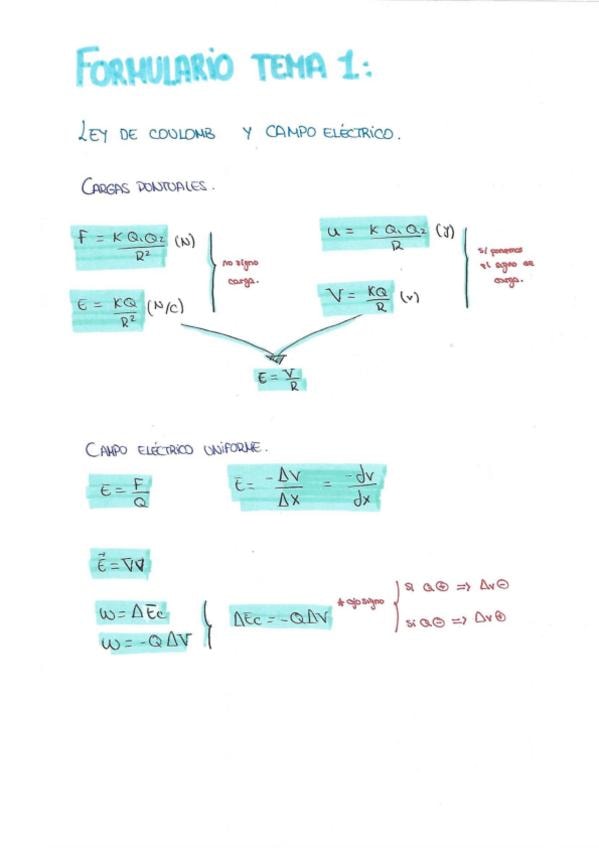 FORMULARIO TEMA 1:
LEY DE COULOMB Y CAMPO ELÉCTRICO.
CARGAS PONTUALES.
F = K Q₁ Q₂ / R² (N)
E = KQ / R² (N/C)
no signo
carga.
U = K Q₁ Q₂ / R (J)
V = KQ / R (v)
sí ponemos
el signo de
carga.
E = V / R
CAMPO ELÉCTRICO UNIFORME.
E = F / Q
E = -ΔV / Δx = -dv / dx
E⃗ = ∇V
W = ΔEc
W = -QΔV
ΔEc = -QΔV
* ojo signo
si Q⊕ => Δv⊖
si Q⊖ => Δv⊕